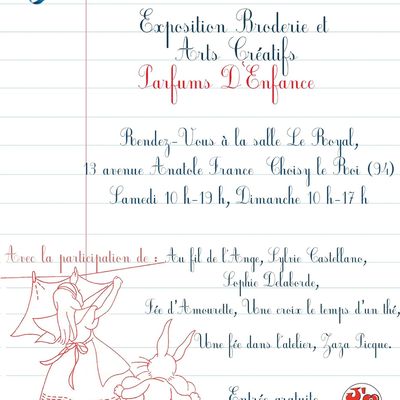 Exposition Broderie et
Arts Créatifs
Parfums D'Enfance
Rendez-Vous à la salle Le Royal,
13 avenue Anatole France Choisy le Roi (94)
Samedi 10 h-19 h, Dimanche 10 h-17 h
Avec la participation de : Au fil de l'Ange, Sylvie Castellano,
Sophie Delaborde,
Fée d'Amourette, Une croix le temps d'un thé,
Une fée dans l'atelier, Zaza Picque.
Entrée gratuite